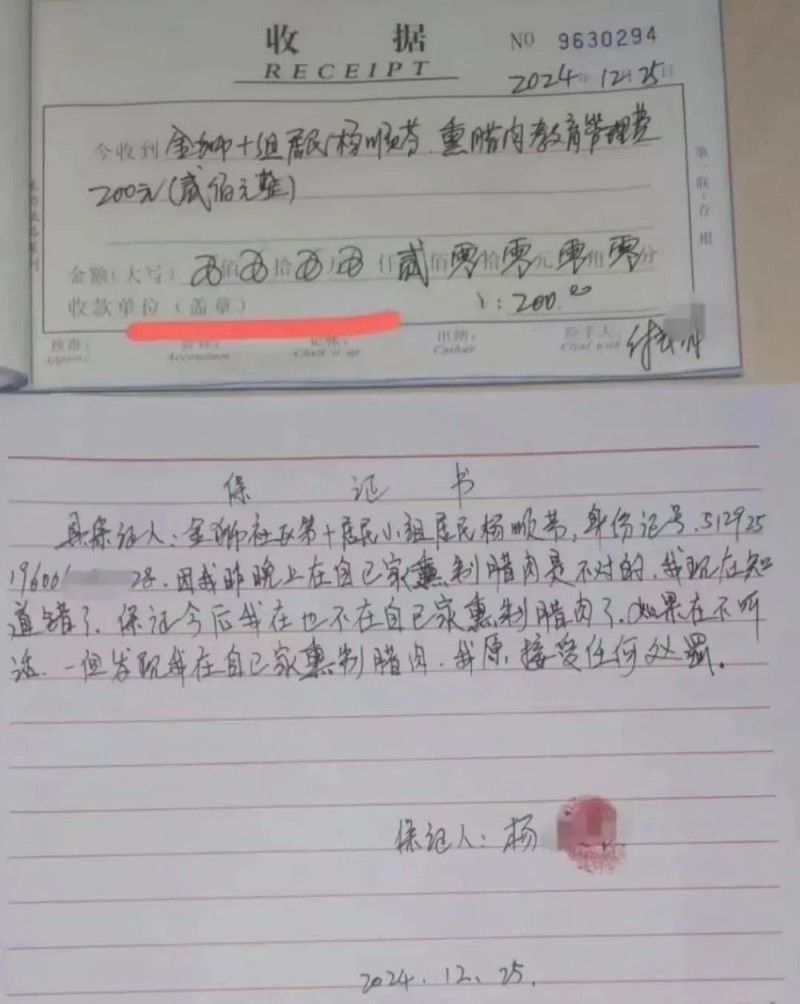 收 据
RECEIPT
NO 9630294
2024年12月25日
今收到 金狮十组居民杨顺芬.熏腊肉教育管理费
200元(贰佰元整)
金额(大写) 佰 拾 万 仟 贰 佰 零 拾 零 元 零 角 零 分
收款单位(盖章) ¥:200.00
第一联:存根
核准: 会计: 记帐: 出纳: 经手人:
Approve Accountant Chalk it up Cashier Deal with
保 证 书
具保证人:金狮社区第十居民小组居民杨顺芬,身份证号.512925
19600 28.因我昨晚上在自己家熏制腊肉是不对的.我现在知
道错了.保证今后我在也不在自己家熏制腊肉了.如果在不听
话.一但发现我在自己家熏制腊肉.我原接受任何处罚。
保证人:杨
2024.12.25.